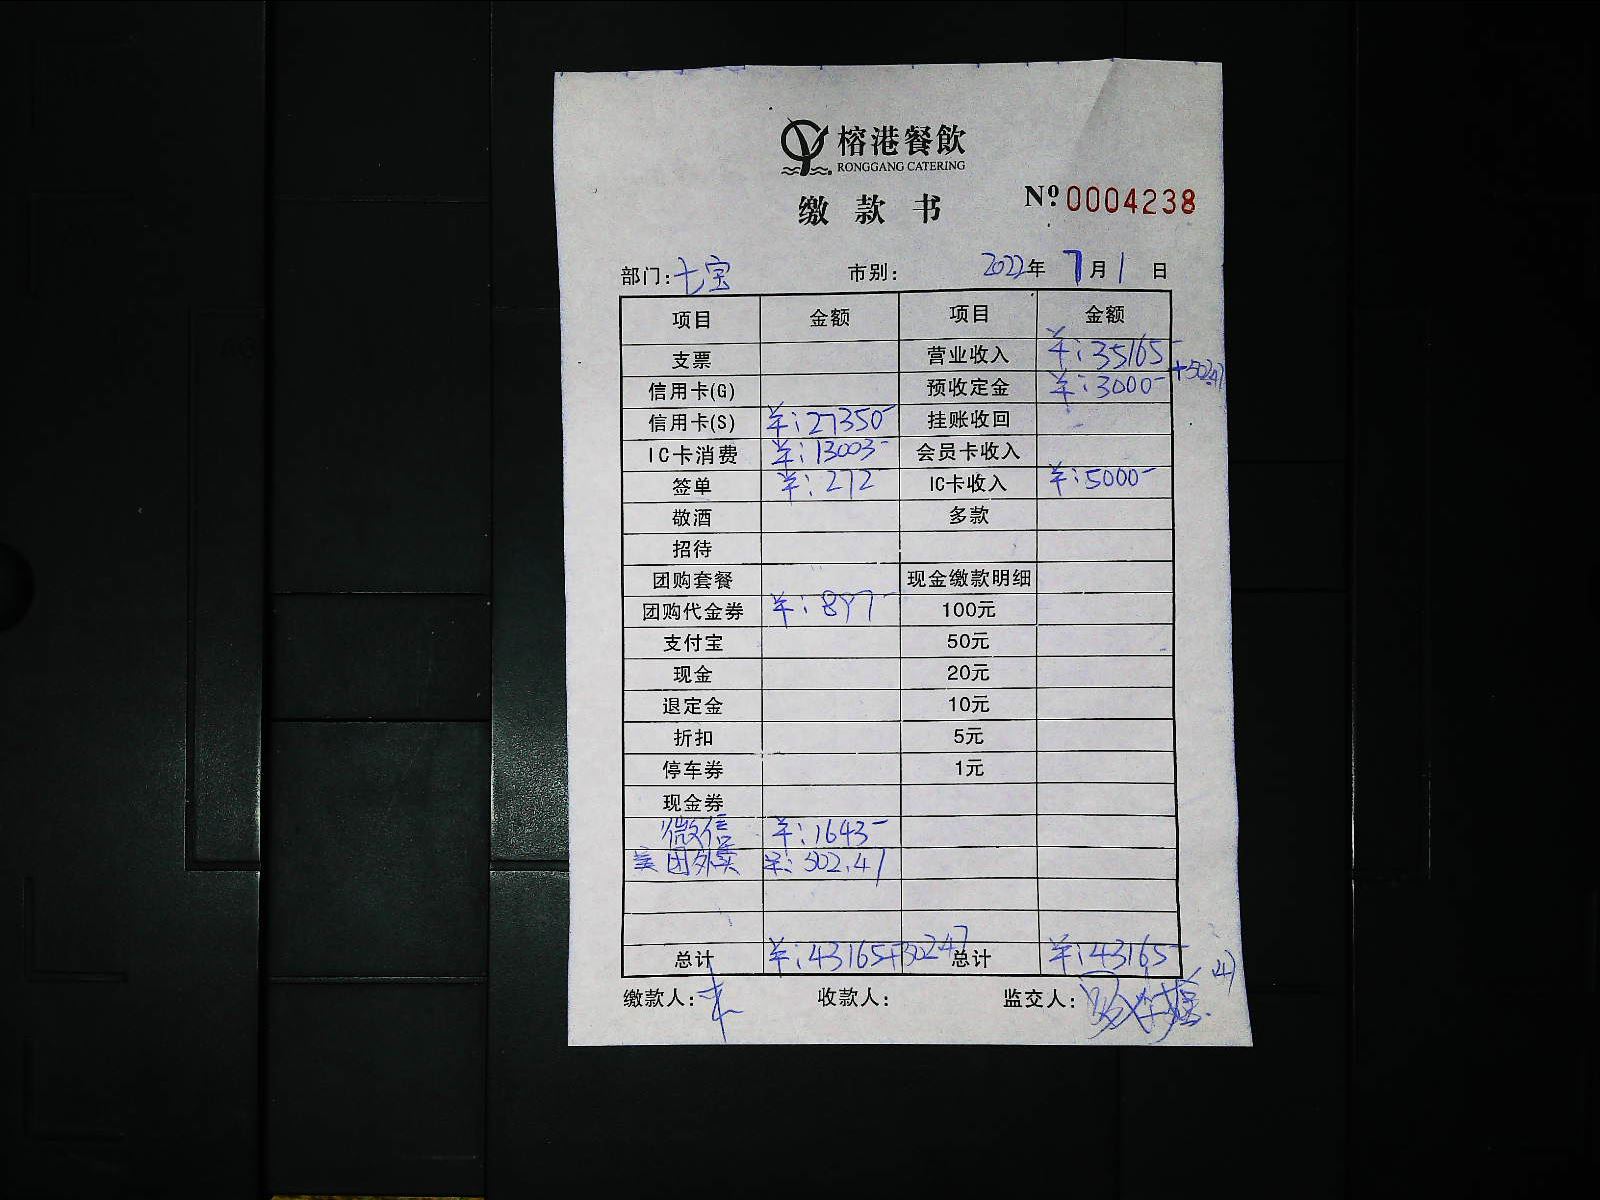 榕港餐飲
RONGGANG CATERING
缴款书 Nº 0004238
部门:七宝 市别: 2022年7月1日
项目 金额 项目 金额
支票 营业收入 ¥:35165-
信用卡(G) 预收定金 ¥:3000-
信用卡(S) ¥:27350- 挂账收回
IC卡消费 ¥:13003- 会员卡收入
签单 ¥:272- IC卡收入 ¥:5000-
敬酒 多款
招待
团购套餐 现金缴款明细
团购代金券 ¥:897- 100元
支付宝 50元
现金 20元
退定金 10元
折扣 5元
停车券 1元
现金券
微信 ¥:1643-
美团外卖 ¥:302.47
总计 ¥:43165+302.47 总计 ¥:43165-
缴款人: 收款人: 监交人: